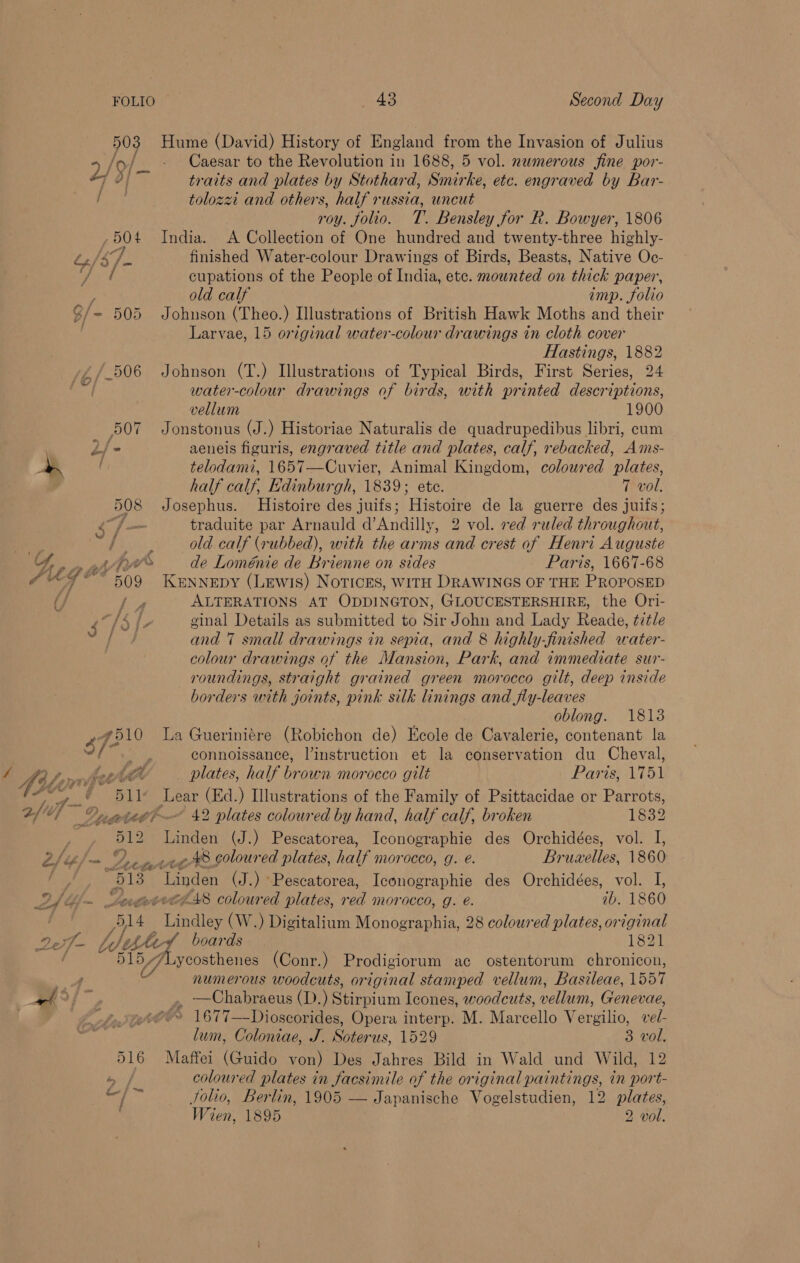 FOLIO 43 Second Day
503 Hume (David) History of England from the Invasion of Julius
Caesar to the Revolution in 1688, 5 vol. numerous fine por-
traits and plates by Stothard, Smirke, etc. engraved by Bar-
tolozzi and others, half russia, uncut
roy. folio. T. Bensley for R. Bowyer, 1806
504 India. A Collection of One hundred and twenty-three highly-
finished Water-colour Drawings of Birds, Beasts, Native Oc-
cupations of the People of India, etc. mounted on thick paper,
old calf imp. folio
505 Johnson (Theo.) Illustrations of British Hawk Moths and their
Larvae, 15 original water-colour drawings in cloth cover
Hastings, 1882
506 Johnson (T.) Illustrations of Typical Birds, First Series, 24
water-colour drawings of birds, with printed descriptions,
vellum 1900
507 Jonstonus (J.) Historiae Naturalis de quadrupedibus libri, cum
aeneis figuris, engraved title and plates, calf, rebacked, Ams-
telodami, 1657—Cuvier, Animal Kingdom, coloured plates,
half calf, Edinburgh, 1839; etc. 7 vol.
508 Josephus. Histoire des juifs; Histoire de la guerre des juifs;
traduite par Arnauld d'Andilly, 2 vol. red ruled throughout,
old calf (rubbed), with the arms and crest of Henri Auguste
de Loménie de Brienne on sides Paris, 1667-68
509 KENNEDY (LEWIS) NOTICES, WITH DRAWINGS OF THE PROPOSED
ALTERATIONS AT ODDINGTON, GLOUCESTERSHIRE, the Ori-
ginal Details as submitted to Sir John and Lady Reade, title
and 7 small drawings in sepia, and 8 highly-finished water-
colour drawings of the Mansion, Park, and immediate sur-
roundings, straight grained green morocco gilt, deep inside
borders with joints, pink silk linings and fly-leaves
oblong. 1813
510 La Gueriniére (Robichon de) Ecole de Cavalerie, contenant la
connoissance, l'instruction et la conservation du Cheval,
plates, half brown morocco gilt Paris, 1751
511 Lear (Ed.) Illustrations of the Family of Psittacidae or Parrots,
42 plates coloured by hand, half calf, broken 1832
512 Linden (J.) Pescatorea, Iconographie des Orchidées, vol. I,
48 coloured plates, half morocco, g. e. Bruxelles, 1860
513 Linden (J.) Pescatorea, Iconographie des Orchidées, vol. I,
48 coloured plates, red morocco, g. e. ib. 1860
514 Lindley (W.) Digitalium Monographia, 28 coloured plates, original
boards 1821
515 Lycosthenes (Conr.) Prodigiorum ac ostentorum chronicon,
numerous woodcuts, original stamped vellum, Basileae, 1557
—Chabraeus (D.) Stirpium Icones, woodcuts, vellum, Genevae,
1677—Dioscorides, Opera interp. M. Marcello Vergilio, vel-
lum, Coloniae, J. Soterus, 1529 3 vol.
516 Maffei (Guido von) Des Jahres Bild in Wald und Wild, 12
coloured plates in facsimile of the original paintings, in port-
folio, Berlin, 1905 — Japanische Vogelstudien, 12 plates,
Wien, 1895 2 vol.